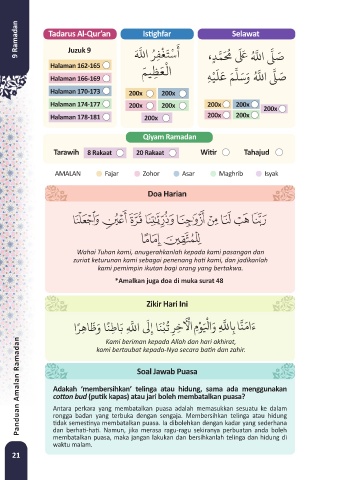 9 Ramadan
Tadarus Al-Qur'an
Juzuk 9
Halaman 162-165
Halaman 166-169
Halaman 170-173
Halaman 174-177
Halaman 178-181
Istighfar
أَسْتَغْفِرُ اللَّهَ
الْعَظِيمَ
200x 200x
200x 200x
200x
Selawat
صَلَّى اللَّهُ عَلَى مُحَمَّدٍ،
صَلَّى اللَّهُ وَسَلَّمَ عَلَيْهِ
200x 200x
200x
200x 200x
Qiyam Ramadan
Tarawih 8 Rakaat 20 Rakaat Witir Tahajud
AMALAN Fajar Zohor Asar Maghrib Isyak
Doa Harian
رَبَّنَا هَبْ لَنَا مِنْ أَزْوَاجِنَا وَذُرِّيَّاتِنَا قُرَّةَ أَعْيُنٍ وَاجْعَلْنَا
لِلْمُتَّقِينَ إِمَامًا
Wahai Tuhan kami, anugerahkanlah kepada kami pasangan dan
zuriat keturunan kami sebagai penenang hati kami, dan jadikanlah
kami pemimpin ikutan bagi orang yang bertakwa.
*Amalkan juga doa di muka surat 48
Zikir Hari Ini
ءَامَنَّا بِاللَّهِ وَالْيَوْمِ الْآخِرِ تُبْنَا إِلَى اللَّهِ بَاطِنًا وَظَاهِرًا
Kami beriman kepada Allah dan hari akhirat,
kami bertaubat kepada-Nya secara batin dan zahir.
Soal Jawab Puasa
Adakah 'membersihkan' telinga atau hidung, sama ada menggunakan
cotton bud (putik kapas) atau jari boleh membatalkan puasa?
Antara perkara yang membatalkan puasa adalah memasukkan sesuatu ke dalam
rongga badan yang terbuka dengan sengaja. Membersihkan telinga atau hidung
tidak semestinya membatalkan puasa. Ia dibolehkan dengan kadar yang sederhana
dan berhati-hati. Namun, jika merasa ragu-ragu sekiranya perbuatan anda boleh
membatalkan puasa, maka jangan lakukan dan bersihkanlah telinga dan hidung di
waktu malam.
Panduan Amalan Ramadan
21